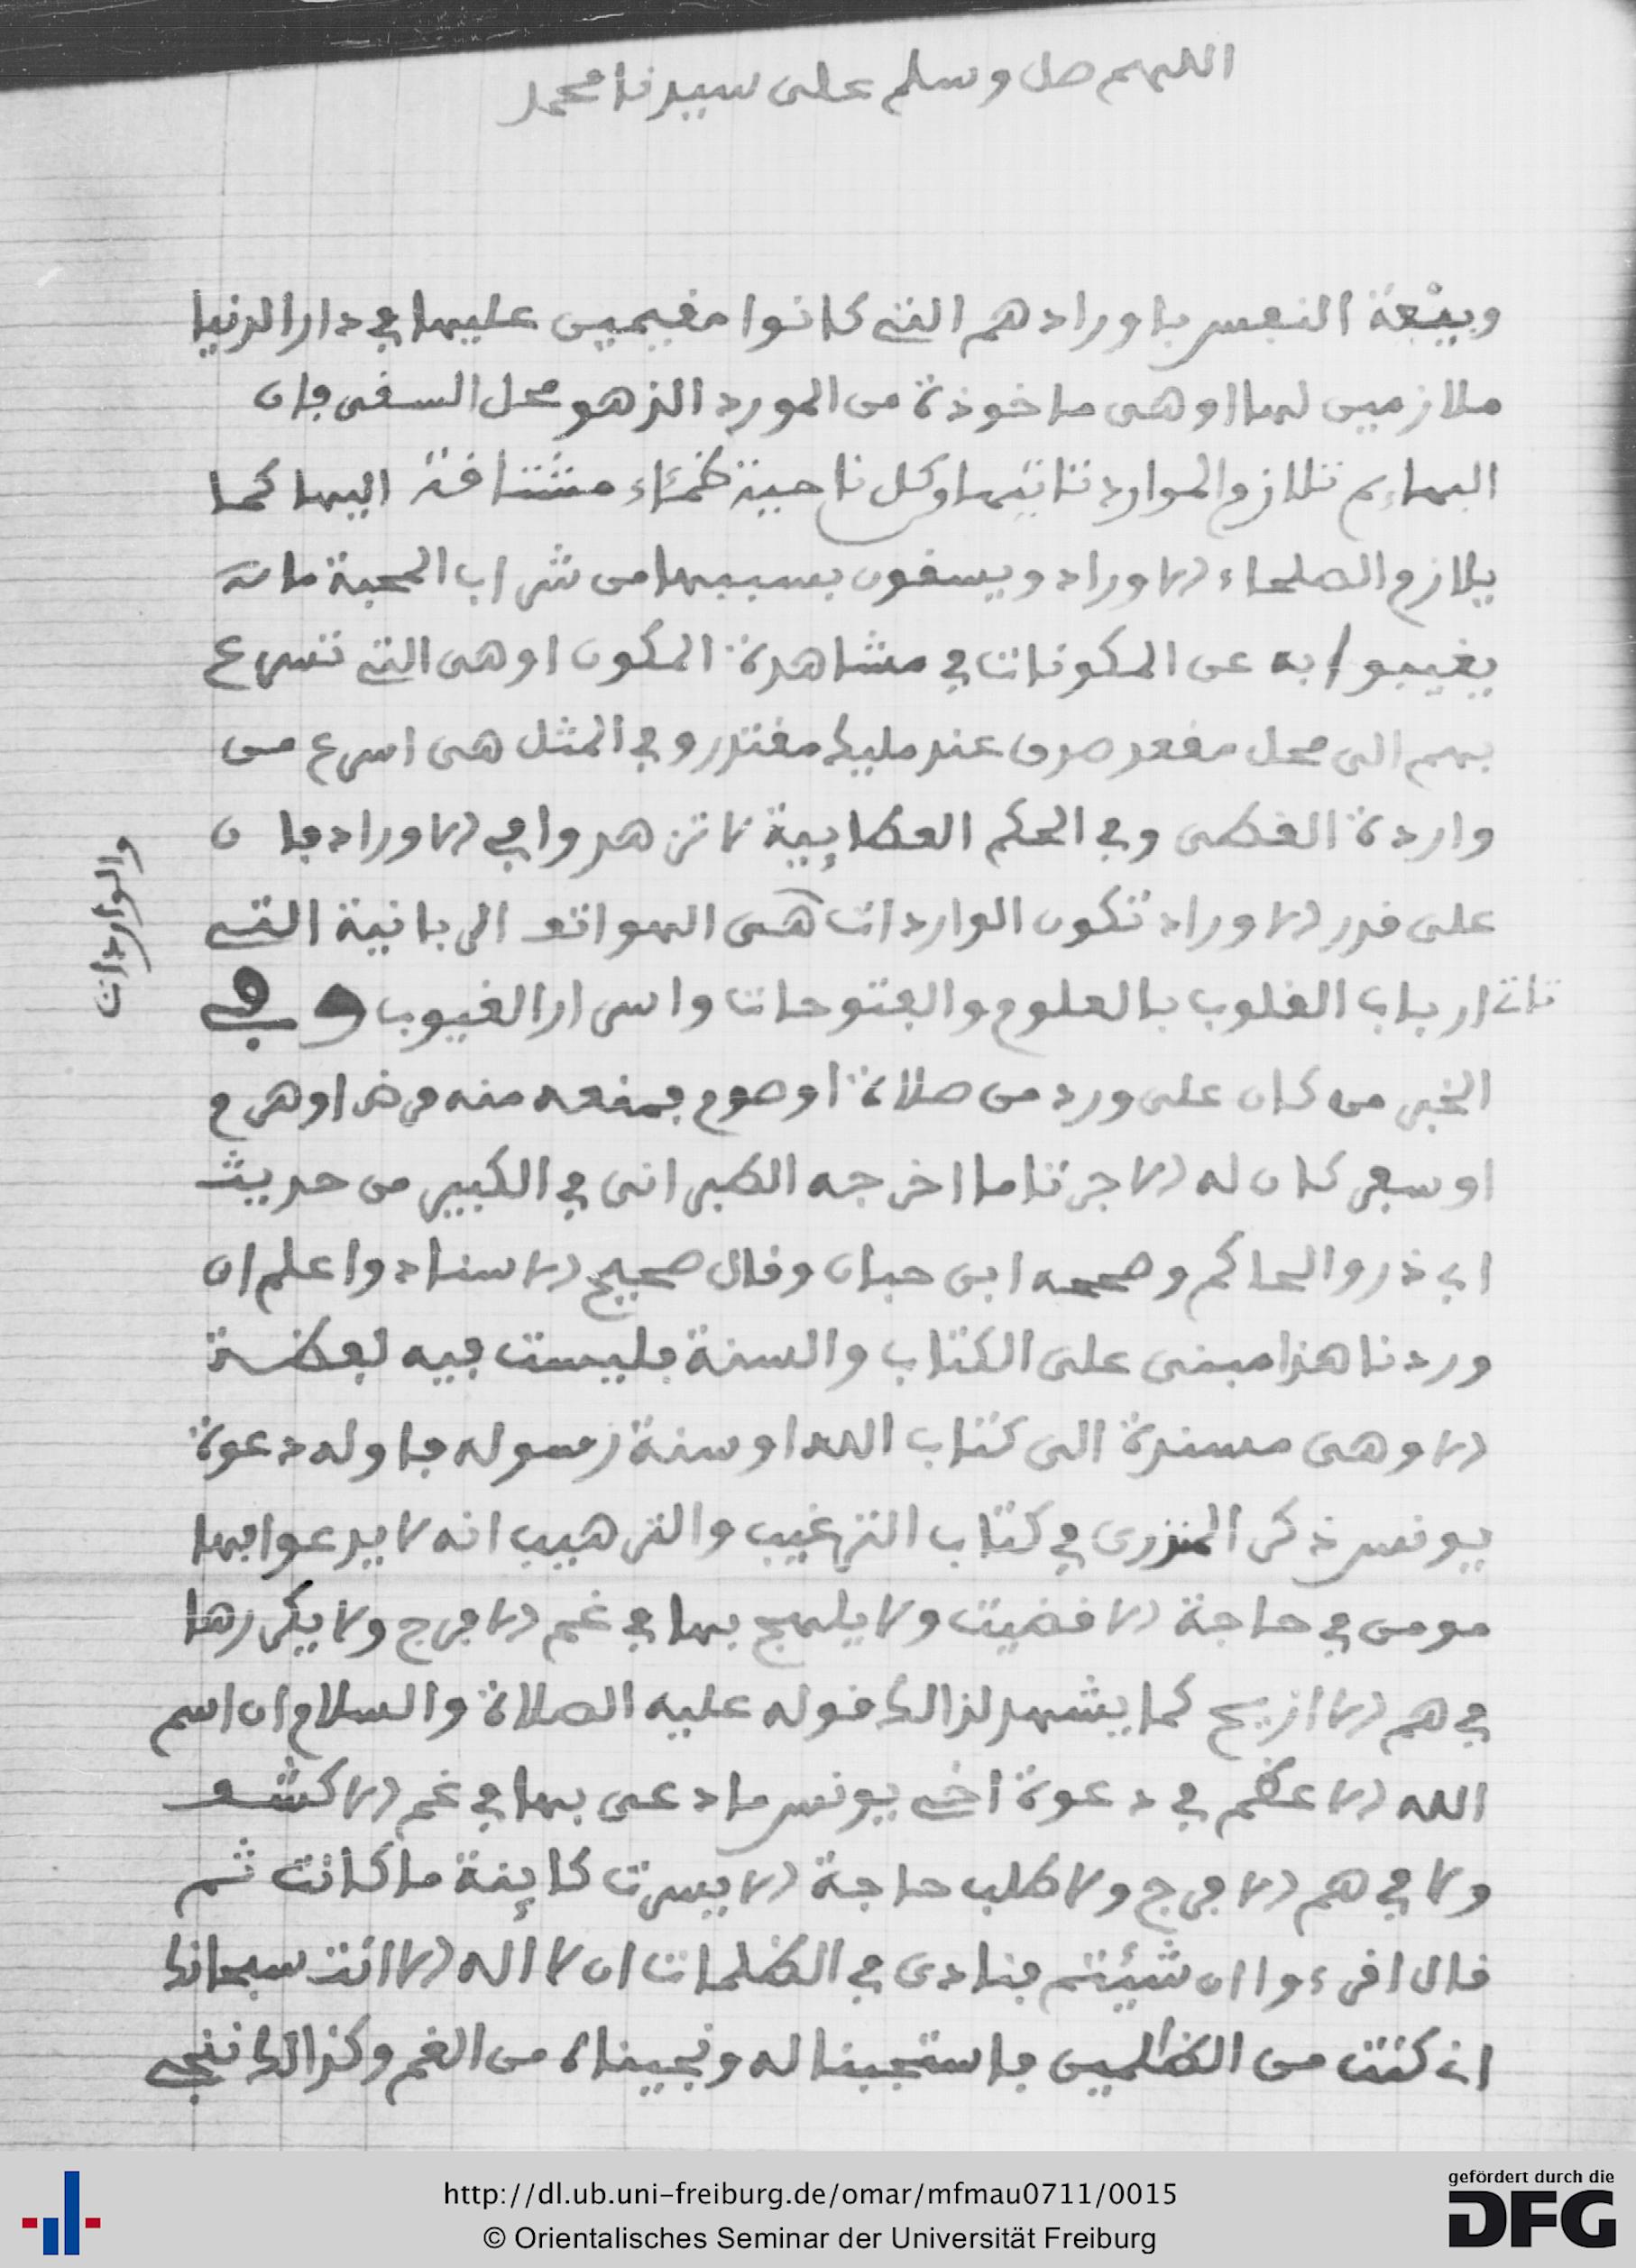 اللهم صل وسلم على سيدنا محمد
وبيعة النفس باورادهم التى كانوا مقيمين عليها في دار الدنيا
ملازمين لها او هى ماخوذة من المورد الذ هو محل السقى فان
البهاءم تلازم الموارد تاتيها وكل ناحية ظمئاء مشتاقة اليها كما
يلازم الصلحاء الاوراد ويسقون بسببها من شراب المحبة ما
يغيبوا به عن المكونات في مشاهدة المكون او هى التى تسرع
بهم الى محل مقعد صدق عند مليك مقتدر وفي المثل هى اسرع من
واردة القطى وفي الحكم العطايية لا تزهدوا في الاوراد فان
على قدر الاوراد تكون الواردات هى الهواتف الربانية التى
والواردات
تاتى ارباب القلوب بالعلوم والفتوحات واسرار الغيوب وفي
الخبر من كان على ورد من صلاة او صوم فمنعه منه مرض او هرم
او سفر كان له الاجر تاما اخرجه الطبرانى في الكبير من حديث
ابى ذر والحاكم وصححه ابن حبان وقال صحيح الاسناد واعلم ان
وردنا هذا مبنى على الكتاب والسنة فليست فيه لفظة
الا وهى مسندة الى كتاب الله او سنة رسوله فاوله دعوة
يونس ذكر المنذرى في كتاب الترغيب والترهيب انه لا يدعوا بها
مومن في حاجة الا قضيت ولا يلهج بها في غم الا فرج ولا يكررها
في هم الا ازيح كما يشهد لذالك قوله عليه الصلاة والسلام ان اسم
الله الاعظم في دعوة اخى يونس ما دعى بها في غم الا كشف
ولا في هم الا فرج ولا طلب حاجة الا يسرت كاينة ما كانت ثم
قال اقرءوا ان شئيتم فنادى في الظلمات ان لا اله الا انت سبحانك
انى كنت من الظلمين فاستجبنا له ونجيناه من الغم وكذالك ننجى
http://dl.ub.uni-freiburg.de/omar/mfmau0711/0015
© Orientalisches Seminar der Universität Freiburg
gefördert durch die
DFG